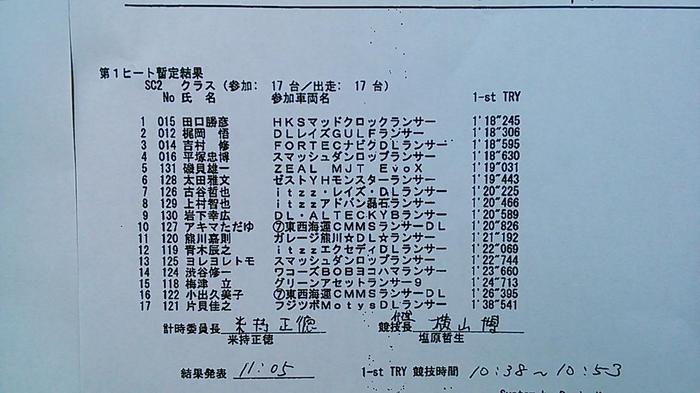 第1ヒート暫定結果
SC2 クラス（参加: 17 台／出走: 17 台）
No 氏 名 参加車両名 1-st TRY
1 015 田口勝彦 HKSマッドクロックランサー 1'18"245
2 012 梶岡 悟 DLレイズGULFランサー 1'18"306
3 014 吉村 修 FORTECナビクDLランサー 1'18"595
4 016 平塚忠博 スマッシュダンロップランサー 1'18"630
5 131 磯貝雄一 ZEAL MJT EvoX 1'19"031
6 128 太田雅文 ゼストYHモンスターランサー 1'19"443
7 126 古谷哲也 itzz・レイズ・DLランサー 1'20"225
8 129 上村智也 itzzアドバン磊石ランサー 1'20"466
9 130 岩下幸広 DL・ALTECKYBランサー 1'20"589
10 127 アキマただゆ ⑦東西海運CMMSランサーDL 1'20"826
11 120 熊川嘉則 ガレージ熊川☆DL☆ランサー 1'21"192
12 119 青木辰之 itzzエクセディDLランサー 1'22"069
13 125 ヨレヨレトモ スマッシュダンロップランサー 1'22"744
14 124 渋谷修一 ワコーズBOBヨコハマランサー 1'23"660
15 118 梅津 立 グリーンアセットランサー9 1'24"713
16 122 小出久美子 ⑦東西海運CMMSランサーDL 1'26"395
17 121 片貝佳之 フジツボMotysDLランサー 1'38"541
計時委員長 米持正徳 競技長 代理 横山 博
米持正徳 塩原哲生
結果発表 11:05 1-st TRY 競技時間 10:38～10:53